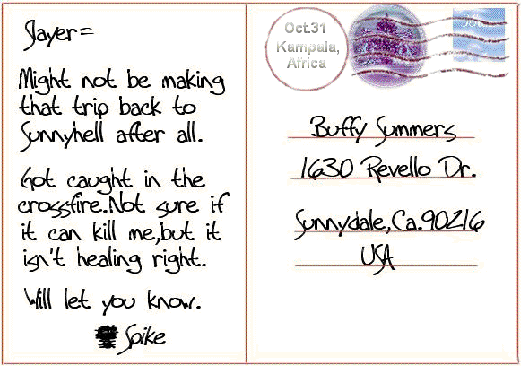 Slayer =
Might not be making
that trip back to
Sunnyhell after all.
Got caught in the
crossfire..Not sure if
it can kill me,but it
isn't healing right.
Will let you know.
Spike
Oct.31
Kampala,
Africa
Buffy Summers
1630 Revello Dr.
Sunnydale,Ca.90216
USA